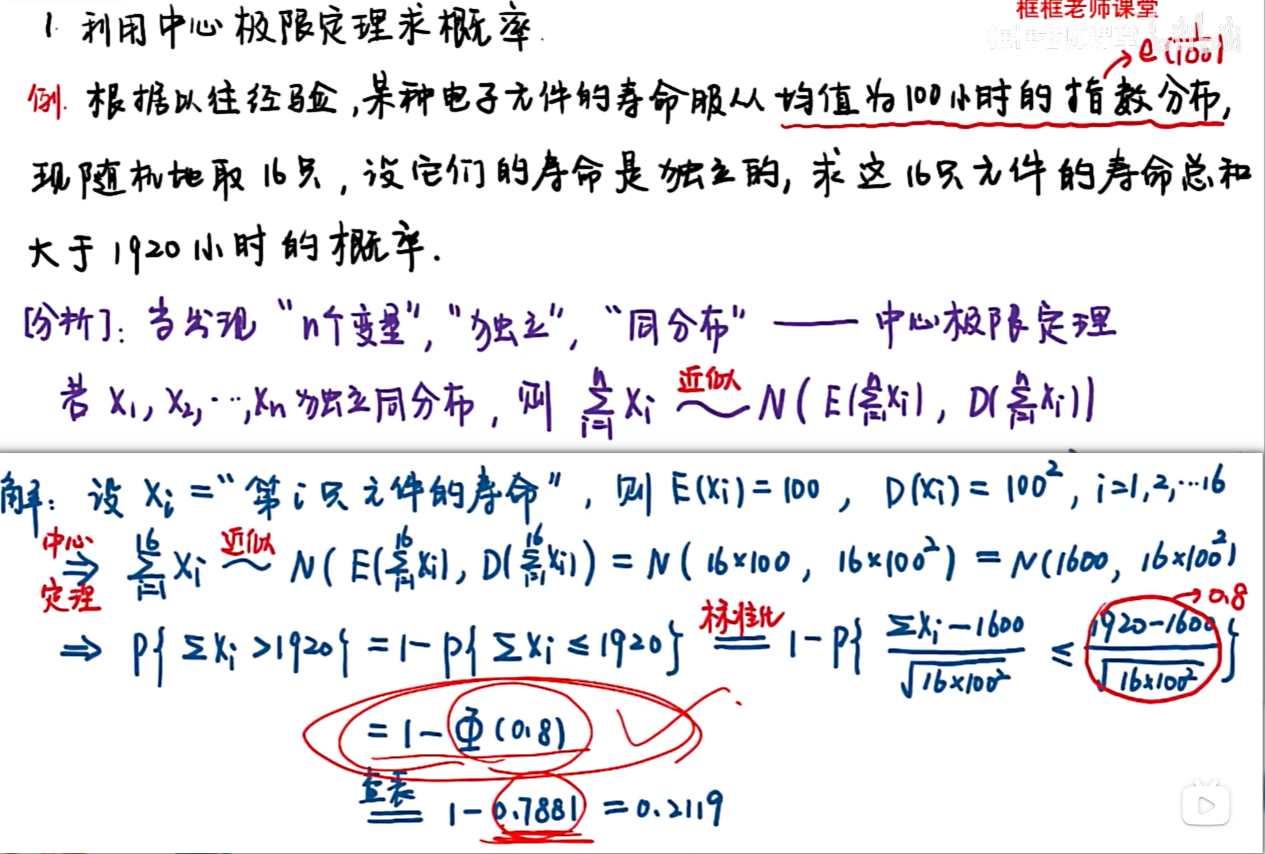 框框老师课堂
1. 利用中心极限定理求概率.
e(1/100)
例. 根据以往经验,某种电子元件的寿命服从均值为100小时的指数分布,
现随机地取16只,设它们的寿命是独立的,求这16只元件的寿命总和
大于1920小时的概率.
[分析]: 当发现“n个变量”,“独立”,“同分布” —— 中心极限定理
若 X₁, X₂, …, Xn 独立同分布, 则 ∑_{i=1}^{n} Xi 近似~ N( E(∑_{i=1}^{n} Xi), D(∑_{i=1}^{n} Xi))
解: 设 Xi =“第i只元件的寿命”, 则 E(Xi)=100, D(Xi)=100², i=1,2,…16
中心定理 ⇒ ∑_{i=1}^{16} Xi 近似~ N( E(∑_{i=1}^{16} Xi), D(∑_{i=1}^{16} Xi)) = N( 16×100, 16×100²) = N(1600, 16×100²)
⇒ P{ ∑Xi >1920} = 1-P{ ∑Xi ≤1920} 标准化= 1-P{ (∑Xi-1600)/√(16×100²) ≤ (1920-1600)/√(16×100²) } →0.8
= 1-Φ(0.8)
查表= 1-0.7881 = 0.2119